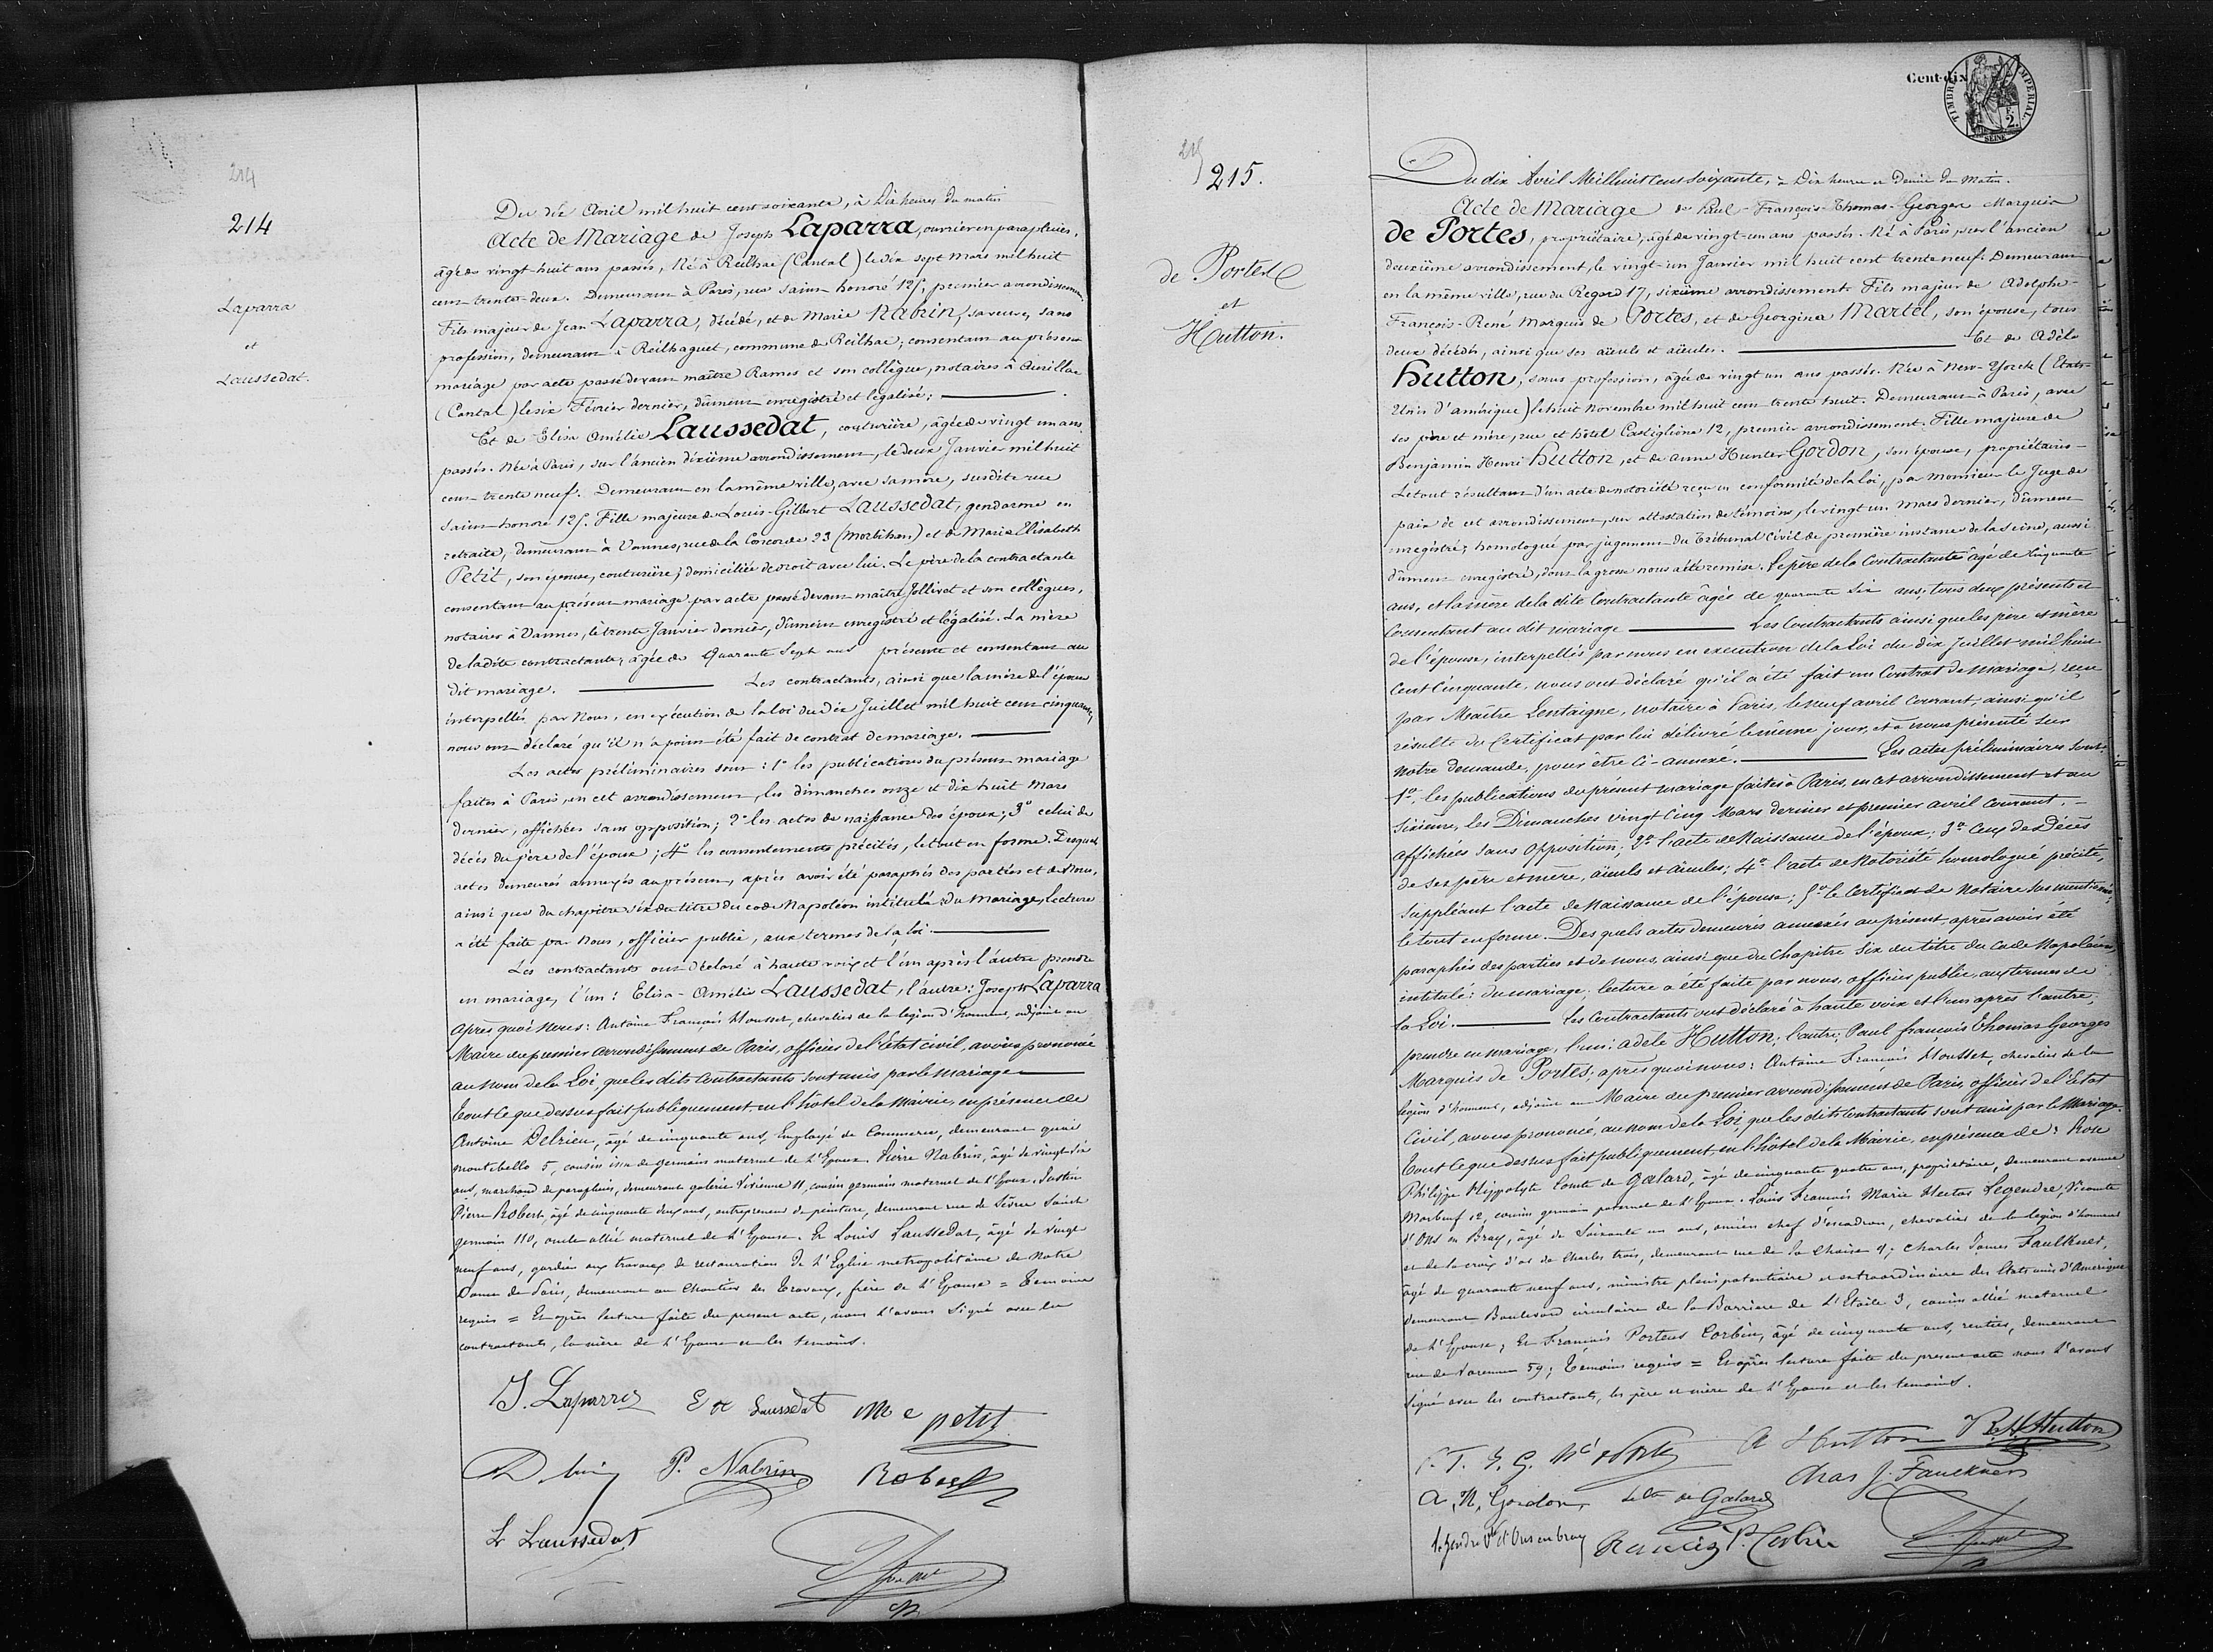 214
214
Laparra
et
Laussedat.
Du dix Avril mil huit cent soixante, à Dix heures du matin
Acte de Mariage de Joseph Laparra, ouvrier en parapluies,
âgé de vingt-huit ans passés, Né à Reilhac (Cantal) le dix sept Mars mil huit
cent trente-deux. Demeurant à Paris, rue saint-honoré 125, premier arrondissement,
Fils majeur de Jean Laparra, décédé, et de Marie Nabrin, sa veuve, sans
profession, demeurant à Reilhaguet, commune de Reilhac; consentant au présent
mariage par acte passé devant maître Rames et son collègue, notaires à Aurillac
(Cantal) le six Février dernier, dûment enregistré et légalisé;
Et de Elisa Amélie Laussedat, couturière, âgée de vingt un ans
passés. Née à Paris, sur l'ancien dixième arrondissement, le deux Janvier mil huit
cent trente neuf. Demeurant en la même ville, avec sa mère, susdite rue
saint-honoré 125. Fille majeure de Louis-Gilbert Laussedat, gendarme en
retraite, demeurant à Vannes, rue de la Concorde 23 (Morbihan) et de Marie Elisabeth
Petit, son épouse, couturière, domiciliée de droit avec lui. Le père de la contractante
consentant au présent mariage par acte passé devant maître Jollivet et son collègues,
notaires à Vannes, le trente Janvier dernier, dûment enregistré et légalisé. La mère
de la dite contractante, âgée de Quarante Sept ans présente et consentant au
dit mariage. Les contractants, ainsi que la mère de l'épouse
interpellés par Nous, en exécution de la loi du dix Juillet mil huit cent cinquante,
nous ont déclaré qu'il n'a point été fait de contrat de mariage.
Les actes préliminaires sont: 1° les publications du présent mariage
faites à Paris, en cet arrondissement, les dimanches onze et dix huit Mars
dernier, affichées sans opposition; 2° les actes de naissance des époux; 3° celui de
décès du père de l'époux; 4° les consentements précités, le tout en forme. Desquels
actes demeurés annexés au présent, après avoir été paraphés des parties et de Nous,
ainsi que du chapitre six du titre du code Napoléon intitulé du Mariage, lecture
a été faite par Nous, officier public, aux termes de la loi.
Les contractants ont déclaré à haute voix et l'un après l'autre prendre
en mariage, l'un: Elisa-Amélie Laussedat, l'autre: Joseph Laparra
après quoi Nous: Antoine François Housset, chevalier de la légion d'honneur, adjoint au
Maire du premier arrondissement de Paris, officier de l'Etat civil, avons prononcé
au nom de la Loi, que les dits Contractants sont unis par le mariage
Tout ce que dessus fait publiquement en l'hôtel de la Mairie, en présence de
Antoine Delrieu, âgé de cinquante ans, Employé de Commerce, demeurant quai
montebello 5, cousin issu de germain maternel de l'Epoux. Pierre Nabrin, âgé de vingt-six
ans, marchand de parapluies, demeurant galerie Vivienne 11, cousin germain maternel de l'Epoux. Justin
Pierre Robert, âgé de cinquante deux ans, entrepreneur de peinture, demeurant rue de Sèvres Saint
germain 110, oncle allié maternel de l'Epouse. Et Louis Laussedat, âgé de vingt
neuf ans, gardien aux travaux de restauration de l'Eglise métropolitaine de Notre
Dame de Paris, demeurant au Chantier des Travaux, frère de l'Epouse = Témoins
requis = Et après lecture faite du présent acte, nous l'avons Signé avec les
contractants, la mère de l'Epouse et les témoins.
J. Laparra E A Laussedat M e petit
P. Nabrin Robert
L Laussedat
Cent-dix
TIMBRE IMPERIAL
2.
SEINE
215
215.
de Portes
et
Hutton.
Du dix Avril Mil huit Cent Soixante, à Dix heures et Demie du Matin.
Acte de Mariage de Paul-François-Thomas-Georges Marquis
de Portes, propriétaire, âgé de vingt-un ans passés. Né à Paris, sur l'ancien
deuxième arrondissement, le vingt-un Janvier mil huit cent trente neuf. Demeurant
en la même ville, rue du Regard 17, sixième arrondissement. Fils majeur de Adolphe-
François-René Marquis de Portes, et de Georgina Martel, son épouse, tous
deux décédés, ainsi que ses aïeuls et aïeules. Et de Adèle
Hutton, sans profession, âgée de vingt un ans passés. Née à New-Yorck (Etats-
Unis d'amérique) le huit Novembre mil huit cent trente huit. Demeurant à Paris, avec
ses père et mère, rue et hôtel Castiglione 12, premier arrondissement. Fille majeure de
Benjamin Henri Hutton, et de anne Hunter Gordon, son épouse, propriétaires-
Le tout résultant d'un acte de notoriété reçu en conformité de la loi, par Monsieur le Juge de
paix de cet arrondissement, sur attestation de témoins, le vingt un Mars dernier, dûment
enregistré; homologué par jugement du Tribunal Civil de première instance de la seine, aussi
dûment enregistré, dont la grosse nous a été remise. Le père de la Contractante âgé de Cinquante
ans, et la mère de la dite Contractante âgée de quarante Six ans, tous deux présents et
Consentant au dit mariage Les Contractants ainsi que les père et mère
de l'épouse, interpellés par nous en exécution de la Loi du dix Juillet mil huit
Cent Cinquante, nous ont déclaré qu'il a été fait un Contrat de Mariage, reçu
par Maître Lentaigne, notaire à Paris, le neuf avril Courant, ainsi qu'il
résulte du Certificat par lui délivré le même jour, et à nous présenté sur
notre demande, pour être ci-annexé. Les actes préliminaires sont:
1° les publications du présent mariage faites à Paris, en cet arrondissement et au
sixième, les Dimanches vingt Cinq Mars dernier et premier avril courant.-
affichées sans opposition; 2° l'acte de Naissance de l'époux; 3° ceux des Décès
de ses père et mère, aïeuls et aïeules; 4° l'acte de Notoriété homologué précité,
suppléant l'acte de Naissance de l'épouse; 5° le Certificat de Notaire sus mentionné;
le tout en forme. Des quels actes demeurés annexés au présent après avoir été
paraphés des parties et de nous, ainsi que du Chapitre Six du titre du Code Napoléon,
intitulé: du mariage; lecture a été faite par nous, officier public, aux termes de
la Loi. Les Contractants ont déclaré à haute voix et l'un après l'autre,
prendre en mariage, l'un: adèle Hutton; l'autre: Paul françois Thomas Georges
Marquis de Portes; après quoi nous: Antoine François Housset, chevalier de la
légion d'honneur, adjoint au Maire du premier arrondissement de Paris, officier de l'Etat
Civil, avons prononcé, au nom de la Loi, que les dits Contractants sont unis par le Mariage.
Tout ce que dessus fait publiquement, en l'hôtel de la Mairie, en présence de:
Philippe Hippolyte Comte de Galard, âgé de cinquante quatre ans, propriétaire, demeurant avenue
Marbeuf 12, cousin germain paternel de l'Epoux. Louis François Marie Hector Legendre, Vicomte
d'Ons en Bray, âgé de Soixante un ans, ancien chef d'escadron, chevalier de la légion d'honneur
et de la croix d'or de Charles trois, demeurant rue de la Chaise 9; Charles James Faulkner,
âgé de quarante neuf ans, ministre plénipotentiaire et extraordinaire des Etats unis d'Amérique
demeurant Boulevard circulaire de la Barrière de l'Etoile 3, cousin allié maternel
de l'Epouse; Et François Porteus Corbin, âgé de cinquante ans, rentier, demeurant
rue de Varenne 59; Témoins requis = Et après lecture faite du présent acte nous l'avons
Signé avec les contractants, les père et mère de l'Epouse et les témoins.
A Hutton B. H. Hutton
A. H. Gordon de Galard Chas J. Faulkner
Legendre Vte d'Onsenbray Francis P. Corbin